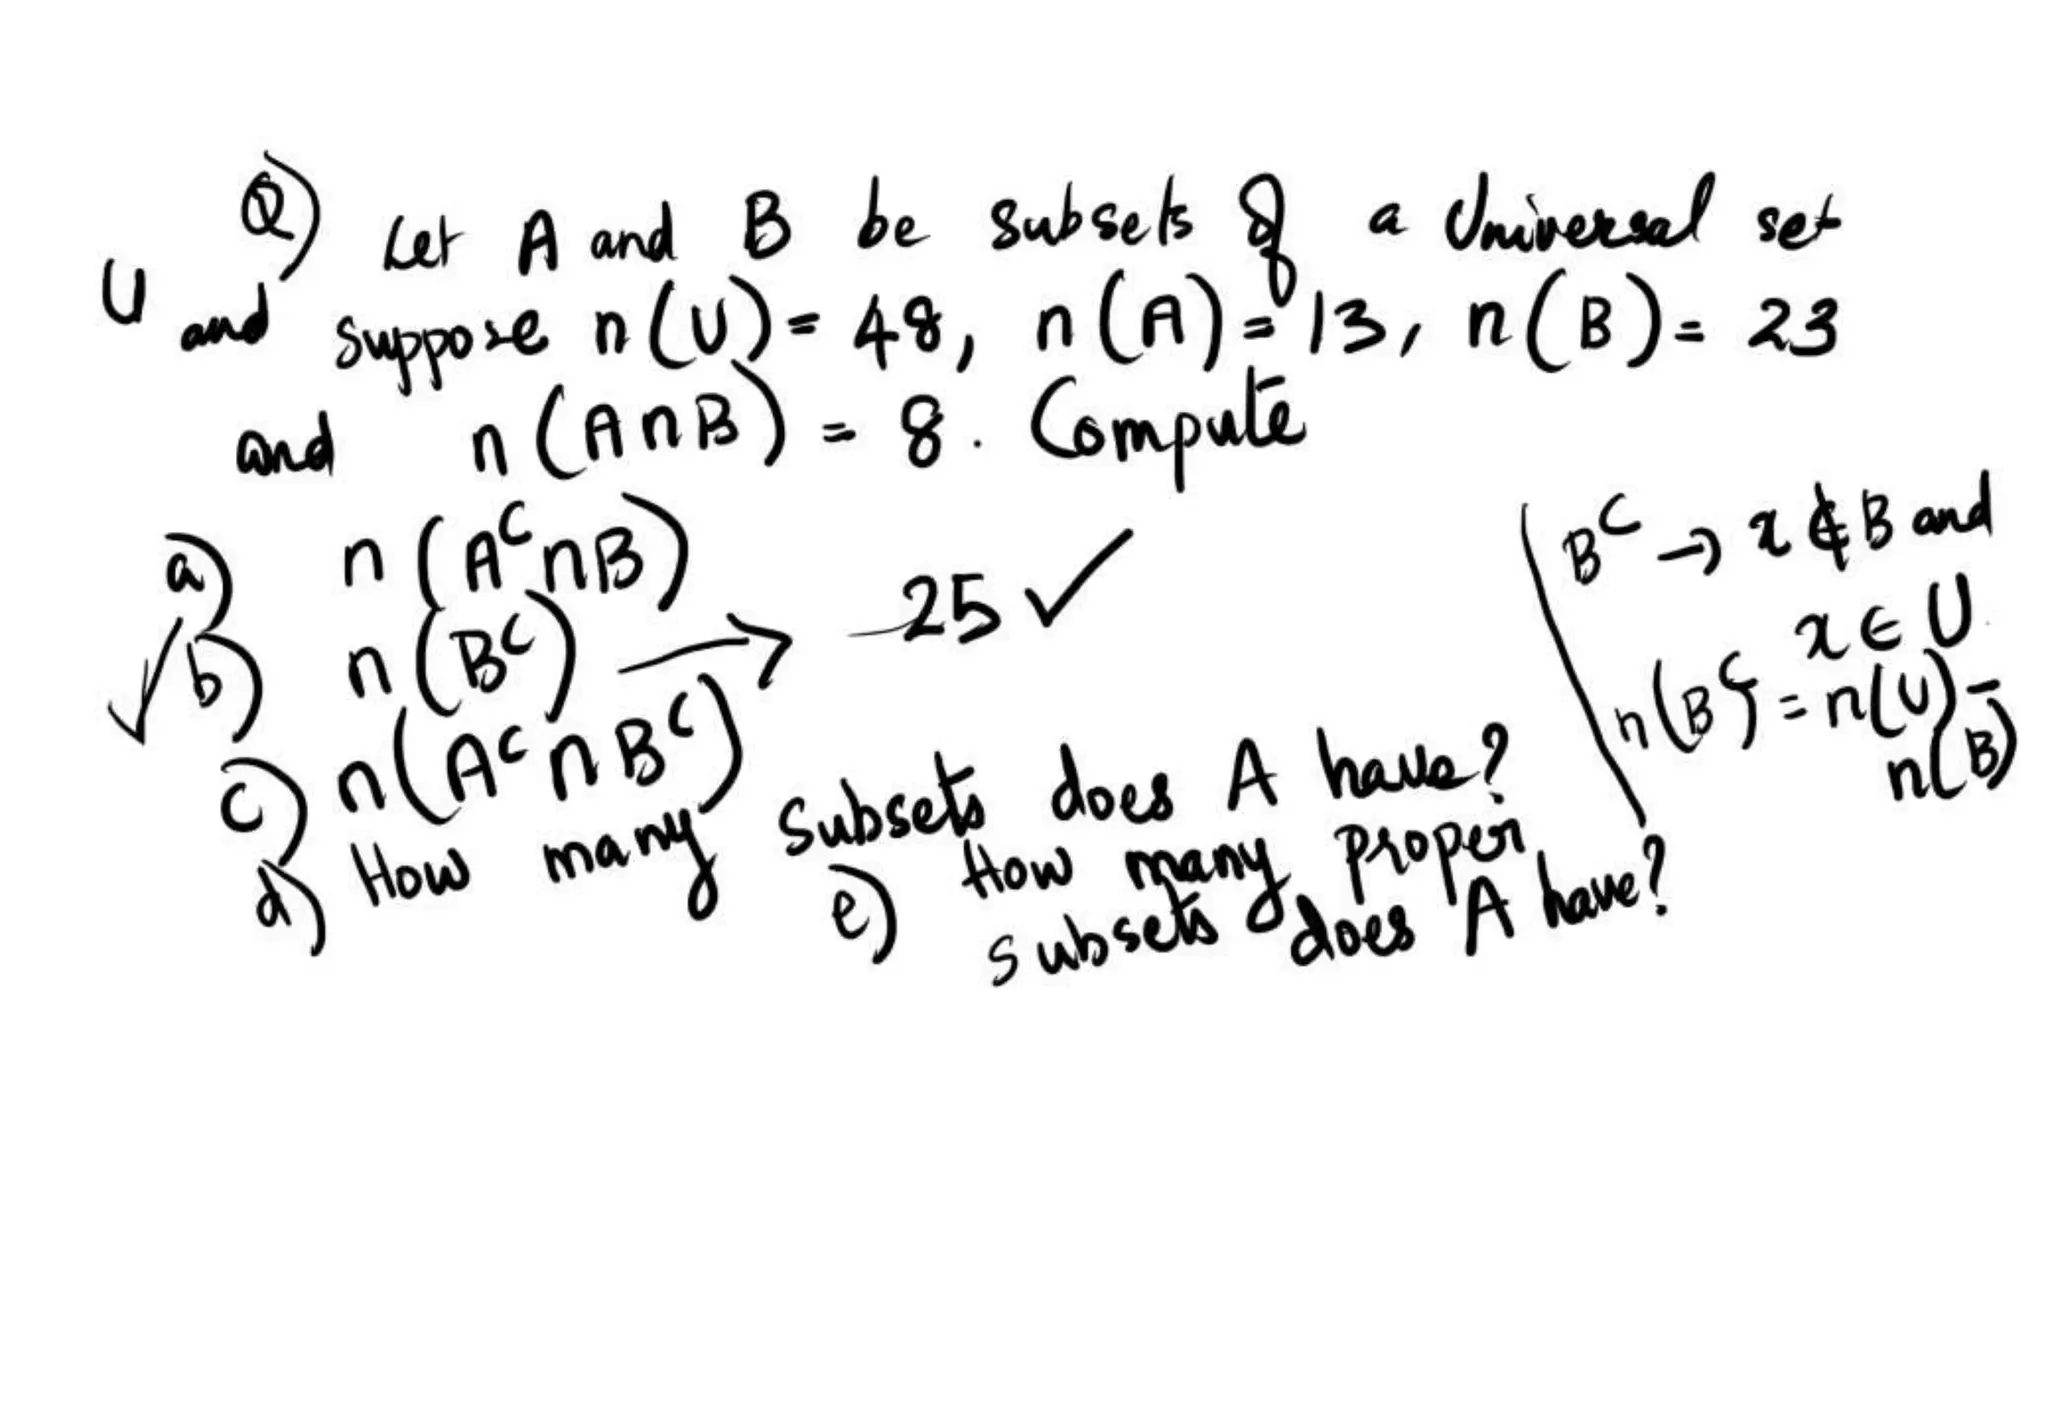 Q) Let A and B be subsets of a Universal set
U and suppose n(U) = 48, n(A) = 13, n(B) = 23
and n(A∩B) = 8. Compute
a) n(Aᶜ∩B)
b) n(Bᶜ) → 25 ✓
c) n(Aᶜ∩Bᶜ)
d) How many subsets does A have?
e) How many proper
subsets does A have?
Bᶜ → x ∉ B and
x ∈ U.
n(Bᶜ) = n(U) -
n(B)